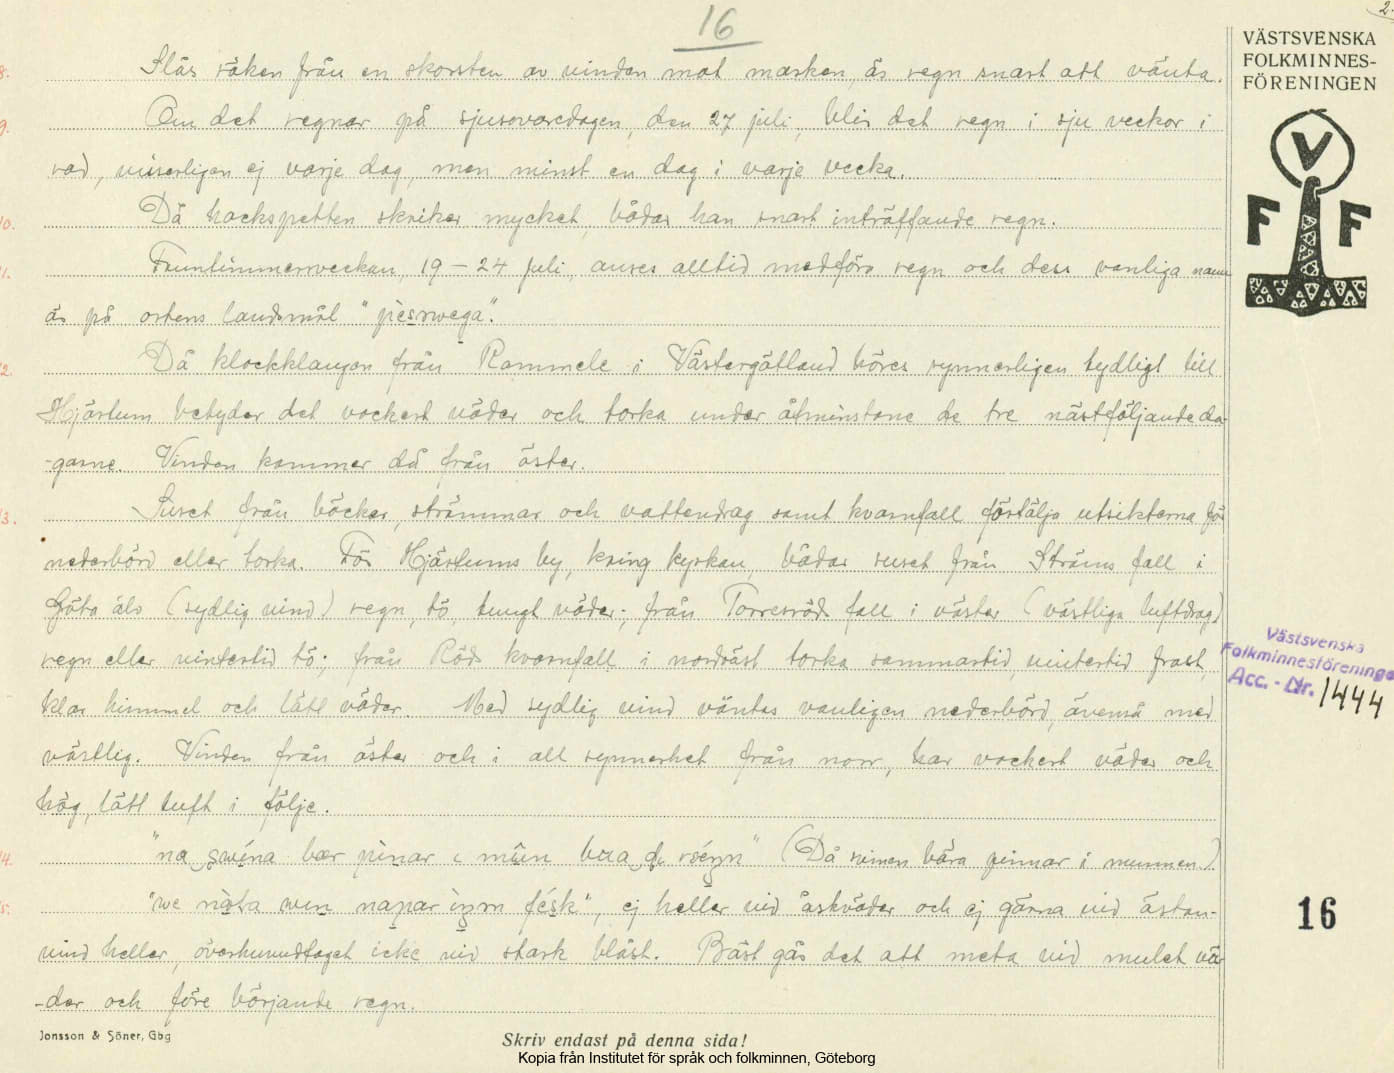 16
8. Slås röken från en skorsten av vinden mot marken, är regn snart att vänta.
9. Om det regnar på sjusovaredagen, den 27 juli, blir det regn i sju veckor i
rad, visserligen ej varje dag, men minst en dag i varje vecka.
10. Då hackspetten skriker mycket, bådar han snart inträffande regn.
11. Fruntimmersveckan, 19 – 24 juli, anses alltid medföra regn och dess vanliga namn
är på ortens landsmål
12. Då klockklangen från Rommele i Västergötland höres synnerligen tydligt till
Hjärtum betyder det vackert väder och torka under åtminstone de tre nästföljande da-
-garne. Vinden kommer då från öster.
13. Suset från bäckar, strömmar och vattendrag samt kvarnfall förtälja utsikterna för
nederbörd eller torka. För Hjärtums by, kring kyrkan, bådar suset från Ströms fall i
Göta älv (sydlig vind) regn, tö, tungt väder; från Torresröds fall i väster (västliga luftdrag)
regn eller vintertid tö; från Röds kvarnfall i nordväst torka sommartid, vintertid frost,
klar himmel och lätt väder. Med sydlig vind väntas vanligen nederbörd, ävenså med
västlig. Vinden från öster och i all synnerhet från norr, har vackert väder och
hög, lätt luft i följe.
14. (Då svinen bära pinnar i munnen.)
15. ej heller vid åskväder och ej gärna vid östan-
vind heller, överhuvudtaget icke vid stark blåst. Bäst går det att meta vid mulet vä-
-der och före började regn.
VÄSTSVENSKA
FOLKMINNES-
FÖRENINGEN
V
F F
Västsvenska
Folkminnesföreningen
Acc. - Nr. 1444
16
Jonsson & Söner, Gbg
Skriv endast på denna sida!
Kopia från Institutet för språk och folkminnen, Göteborg